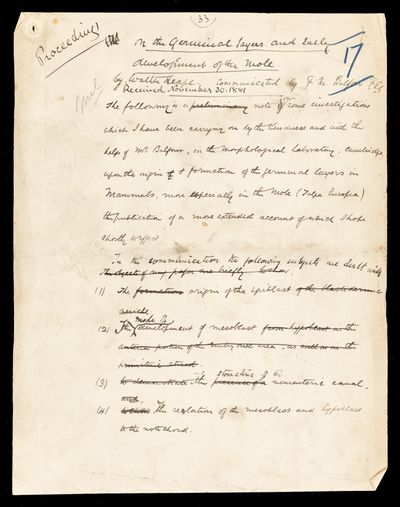 33
Proceedings
17
On the Germinal layers and Early
development of the Mole
by Walter Heape. Communicated by F. M. Balfour
Received November 30. 1881
The following is a preliminary note of some investigations
which I have been carrying on by the kindness and with the
help of Mr Balfour, in the Morphological Laboratory, Cambridge
upon the origin & formation of the germinal layers in
Mammals, more especially in the Mole (Talpa Europea)
the publication of a more extended account of which I hope
shortly to effect
In the communication the following subjects are dealt with
The objects of my paper are briefly to show.
(1) The formation origin of the epiblast of the blastodermic
vesicle
mode of
(2) The development of mesoblast from hypoblast in the
anterior portion of the embryonic area, as well as in the
primitive streak.
structure of the
(3) to demonstrate the presence of a neurenteric canal.
and,
(4) to show the relation of the mesoblast and hypoblast
to the notochord.